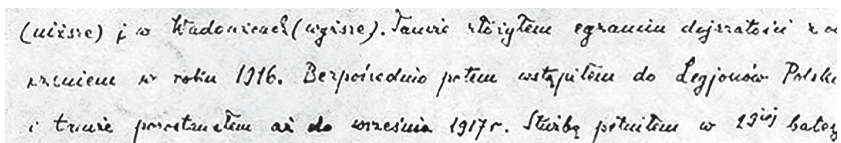 (niższe) i w Wadowicach (wyższe). Tamże złożyłem egzamin dojrzałości z o
w roku 1916. Bezpośrednio potem wstąpiłem do Legjonów Polsk
i tamże pozostałem aż do września 1917 r. Służbę pełniłem w bater